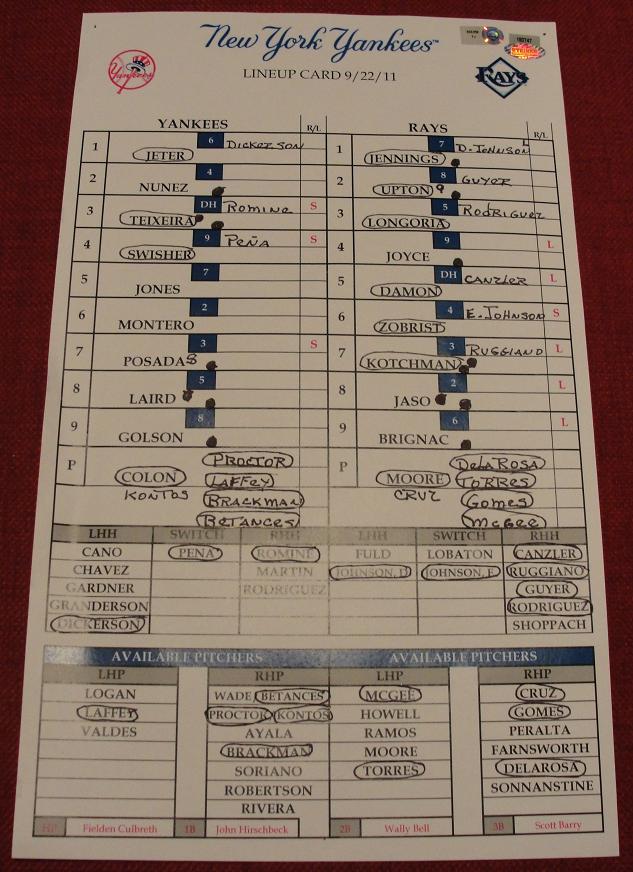 New York Yankees™
LINEUP CARD 9/22/11
Yankees
RAYS
YANKEES R/L
1 JETER 6 DICKERSON
2 NUNEZ 4
3 TEIXEIRA DH ROMINE S
4 SWISHER 9 PEÑA S
5 JONES 7
6 MONTERO 2
7 POSADA 3 S
8 LAIRD 5
9 GOLSON 8
P COLON PROCTOR
KONTOS LAFFEY
BRACKMAN
BETANCES
RAYS R/L
1 JENNINGS 7 D. JOHNSON L
2 UPTON 9 8 GUYER
3 LONGORIA 5 RODRIGUEZ
4 JOYCE 9 L
5 DAMON DH CANZLER L
6 ZOBRIST 4 E. JOHNSON S
7 KOTCHMAN 3 RUGGIANO L
8 JASO 2 L
9 BRIGNAC 6 L
P MOORE DELAROSA
CRUZ TORRES
GOMES
MCGEE
LHH SWITCH RHH LHH SWITCH RHH
CANO PENA ROMINE FULD LOBATON CANZLER
CHAVEZ MARTIN JOHNSON, D JOHNSON, E RUGGIANO
GARDNER RODRIGUEZ GUYER
GRANDERSON RODRIGUEZ
DICKERSON SHOPPACH
AVAILABLE PITCHERS AVAILABLE PITCHERS
LHP RHP LHP RHP
LOGAN WADE BETANCES MCGEE CRUZ
LAFFEY PROCTOR KONTOS HOWELL GOMES
VALDES AYALA RAMOS PERALTA
BRACKMAN MOORE FARNSWORTH
SORIANO TORRES DELAROSA
ROBERTSON SONNANSTINE
RIVERA
HP Fielden Culbreth 1B John Hirschbeck 2B Wally Bell 3B Scott Barry